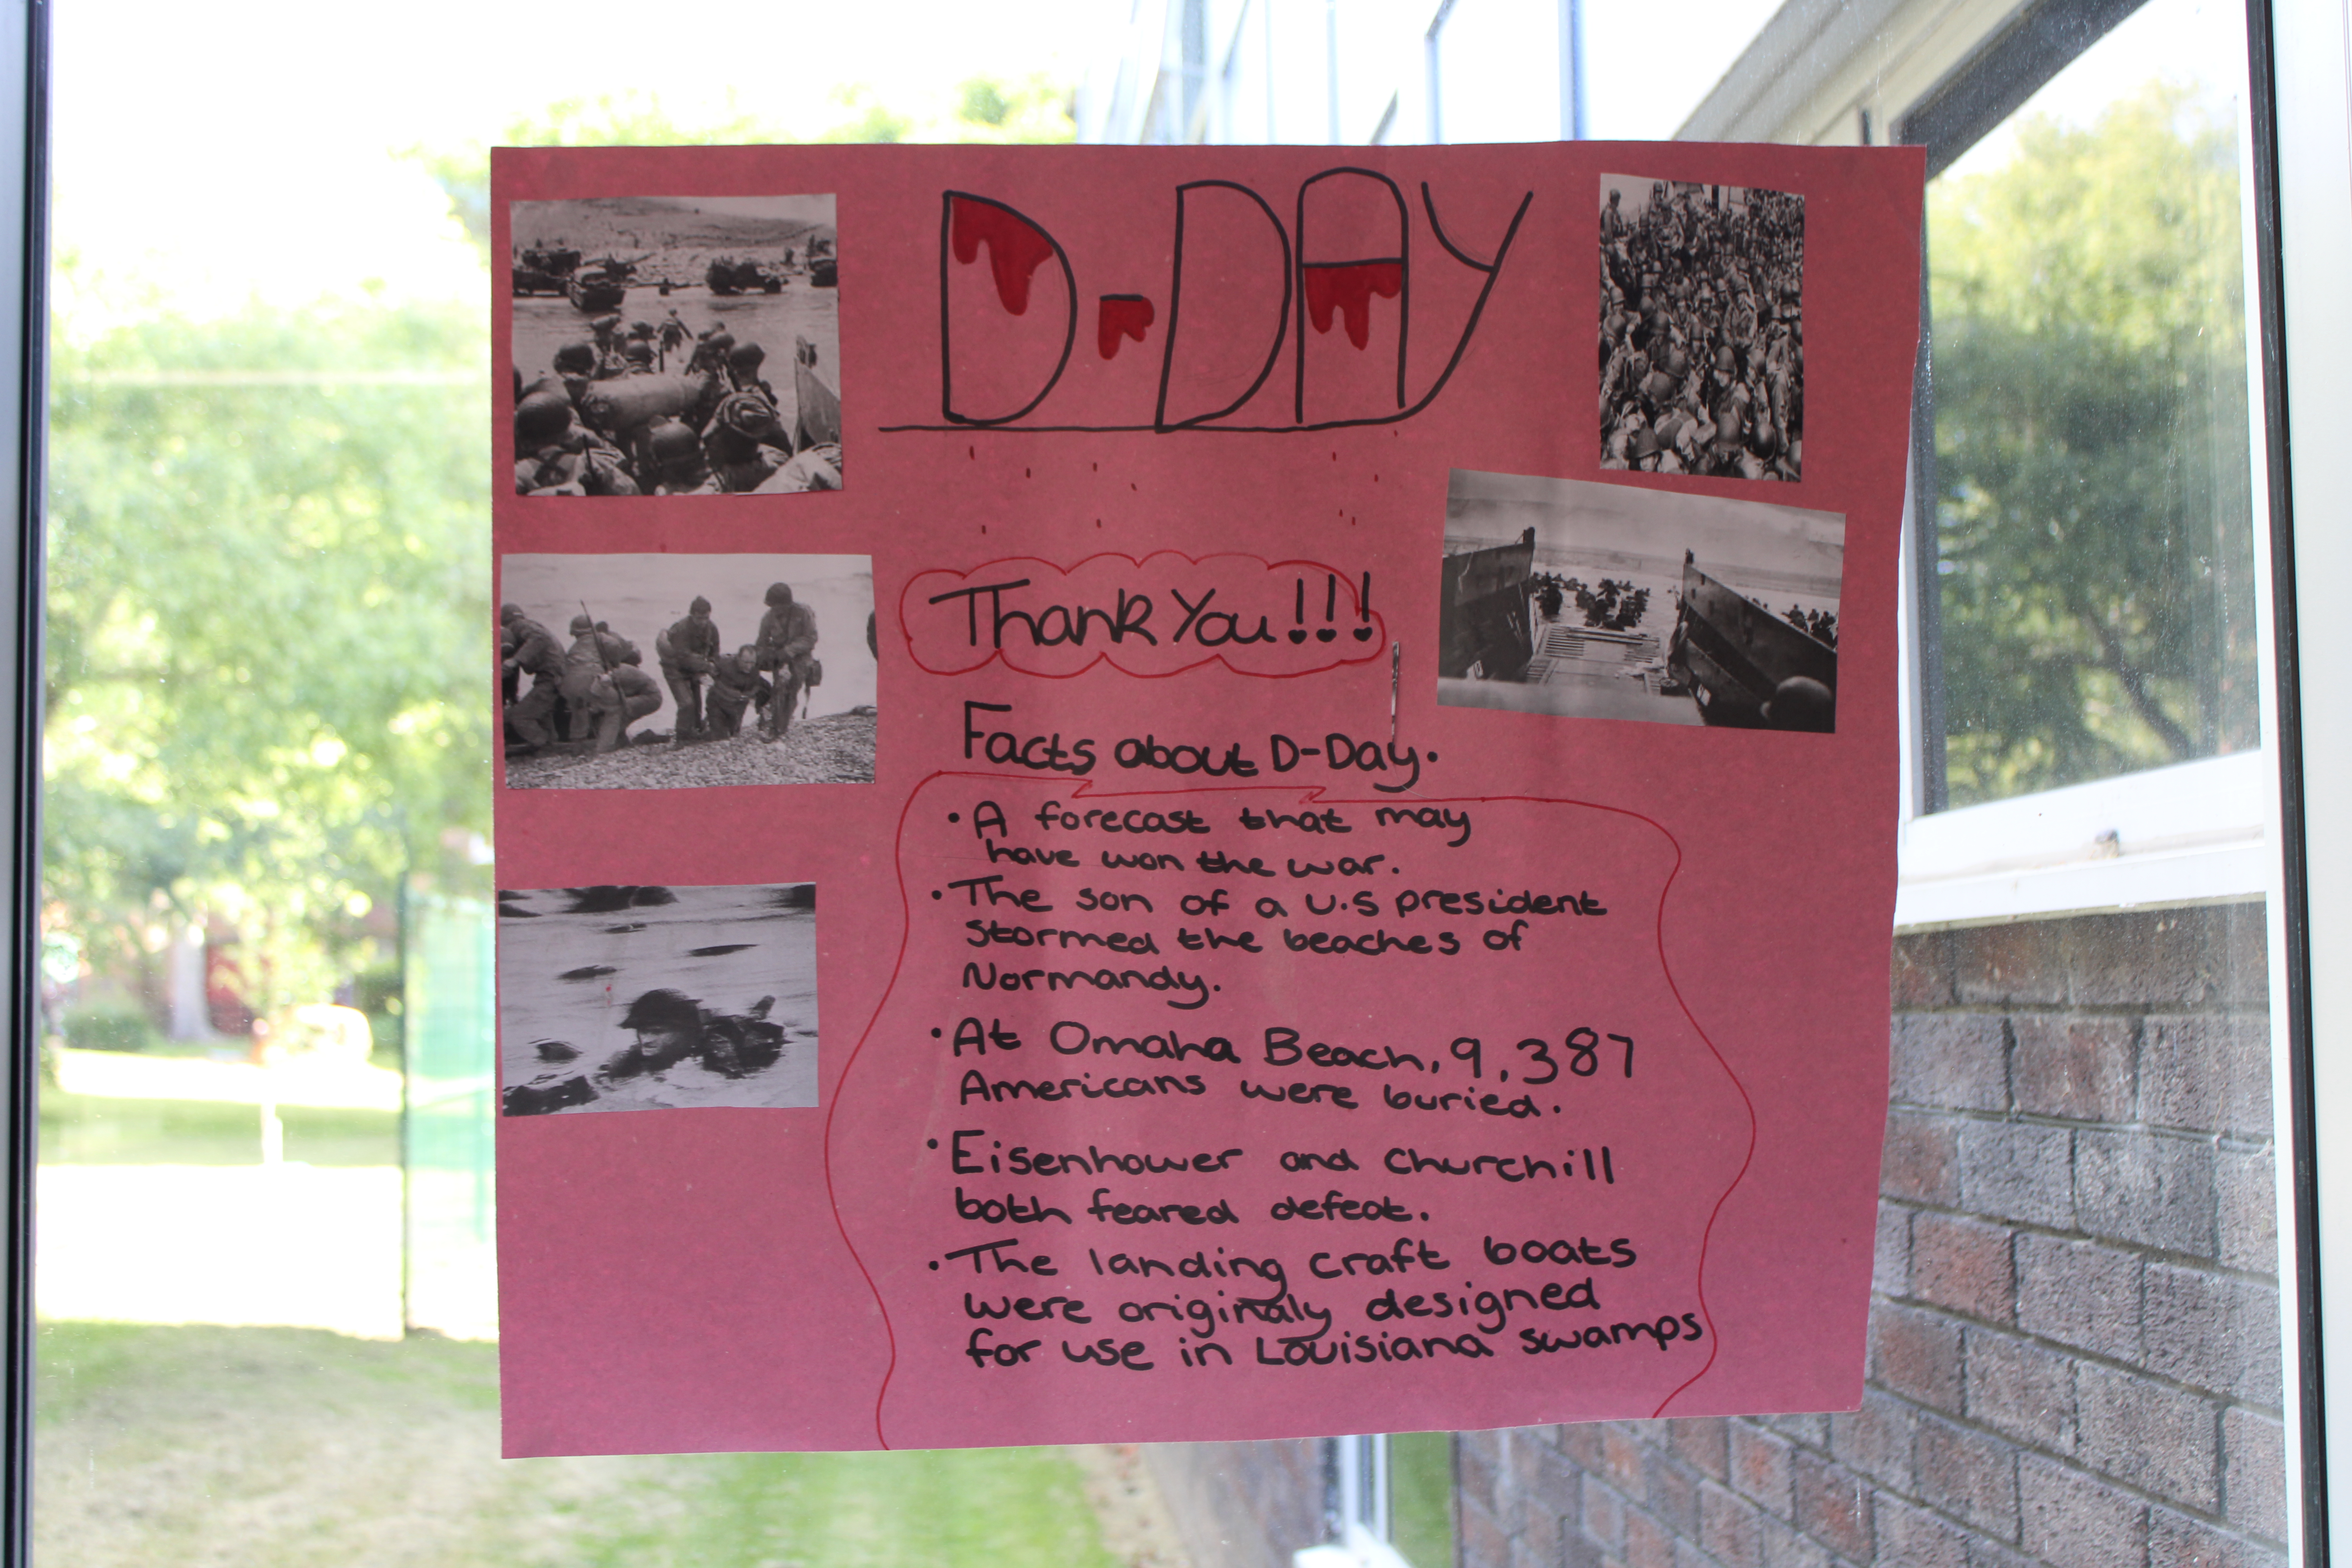 D-DAY
Thank You!!!
Facts about D-Day.
• A forecast that may
have won the war.
• The son of a U.S president
stormed the beaches of
Normandy.
• At Omaha Beach, 9,387
Americans were buried.
• Eisenhower and Churchill
both feared defeat.
• The landing craft boats
were originaly designed
for use in Louisiana swamps